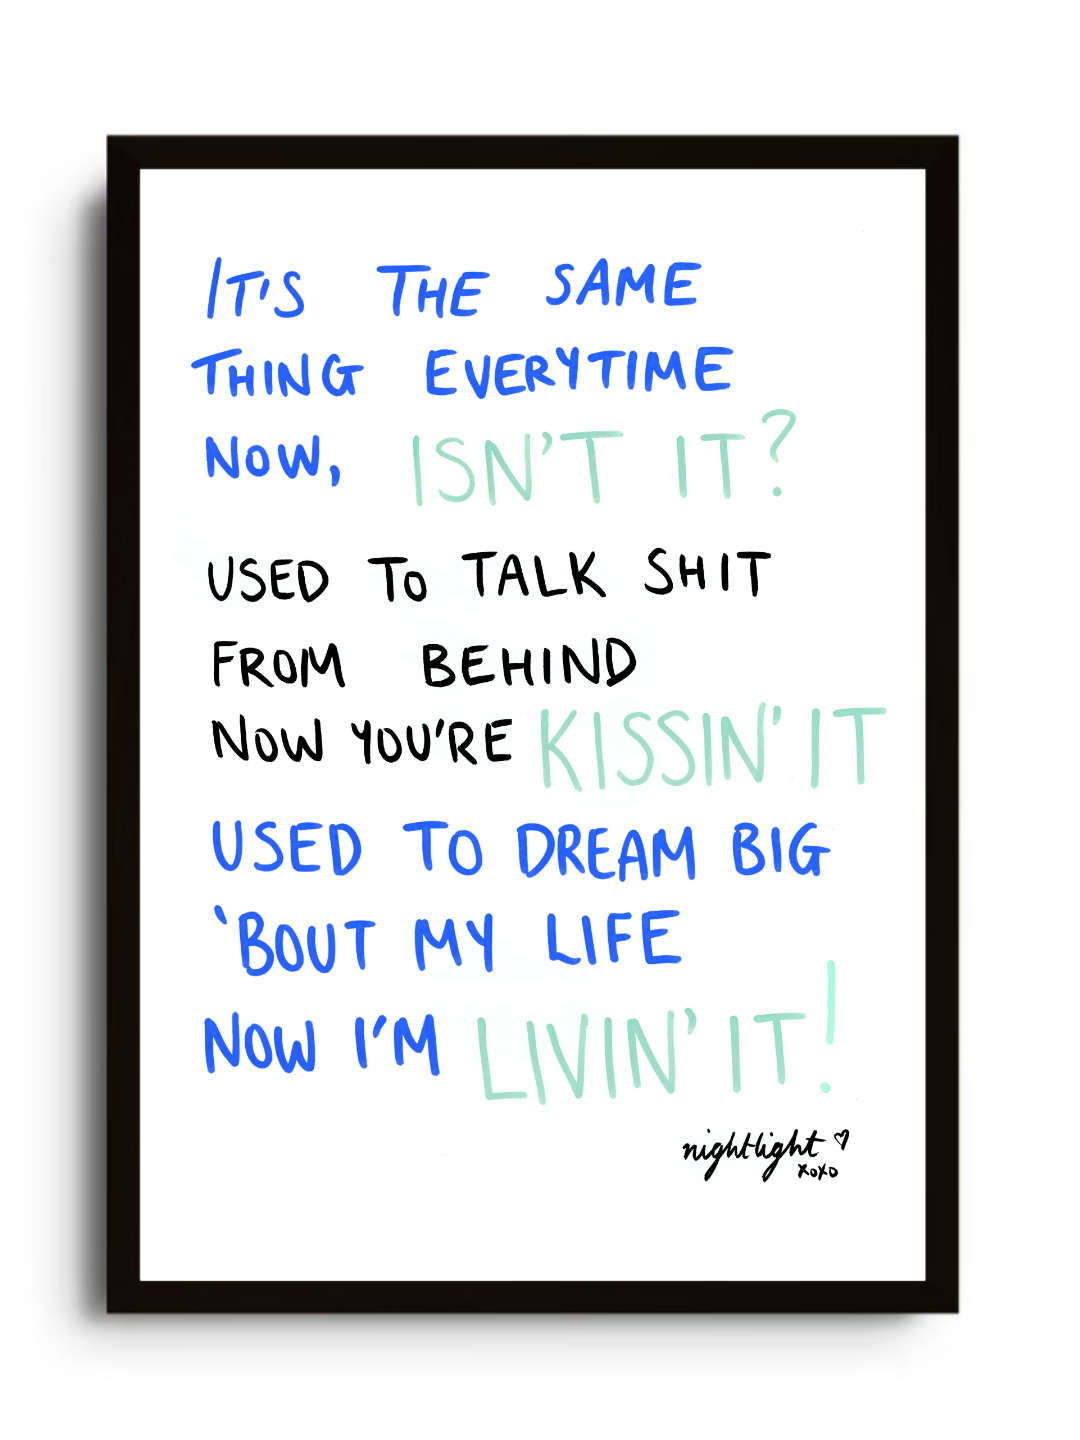 IT'S THE SAME
THING EVERYTIME
NOW, ISN'T IT?
USED TO TALK SHIT
FROM BEHIND
NOW YOU'RE KISSIN' IT
USED TO DREAM BIG
'BOUT MY LIFE
NOW I'M LIVIN' IT!
nightlight ♡
xoxo